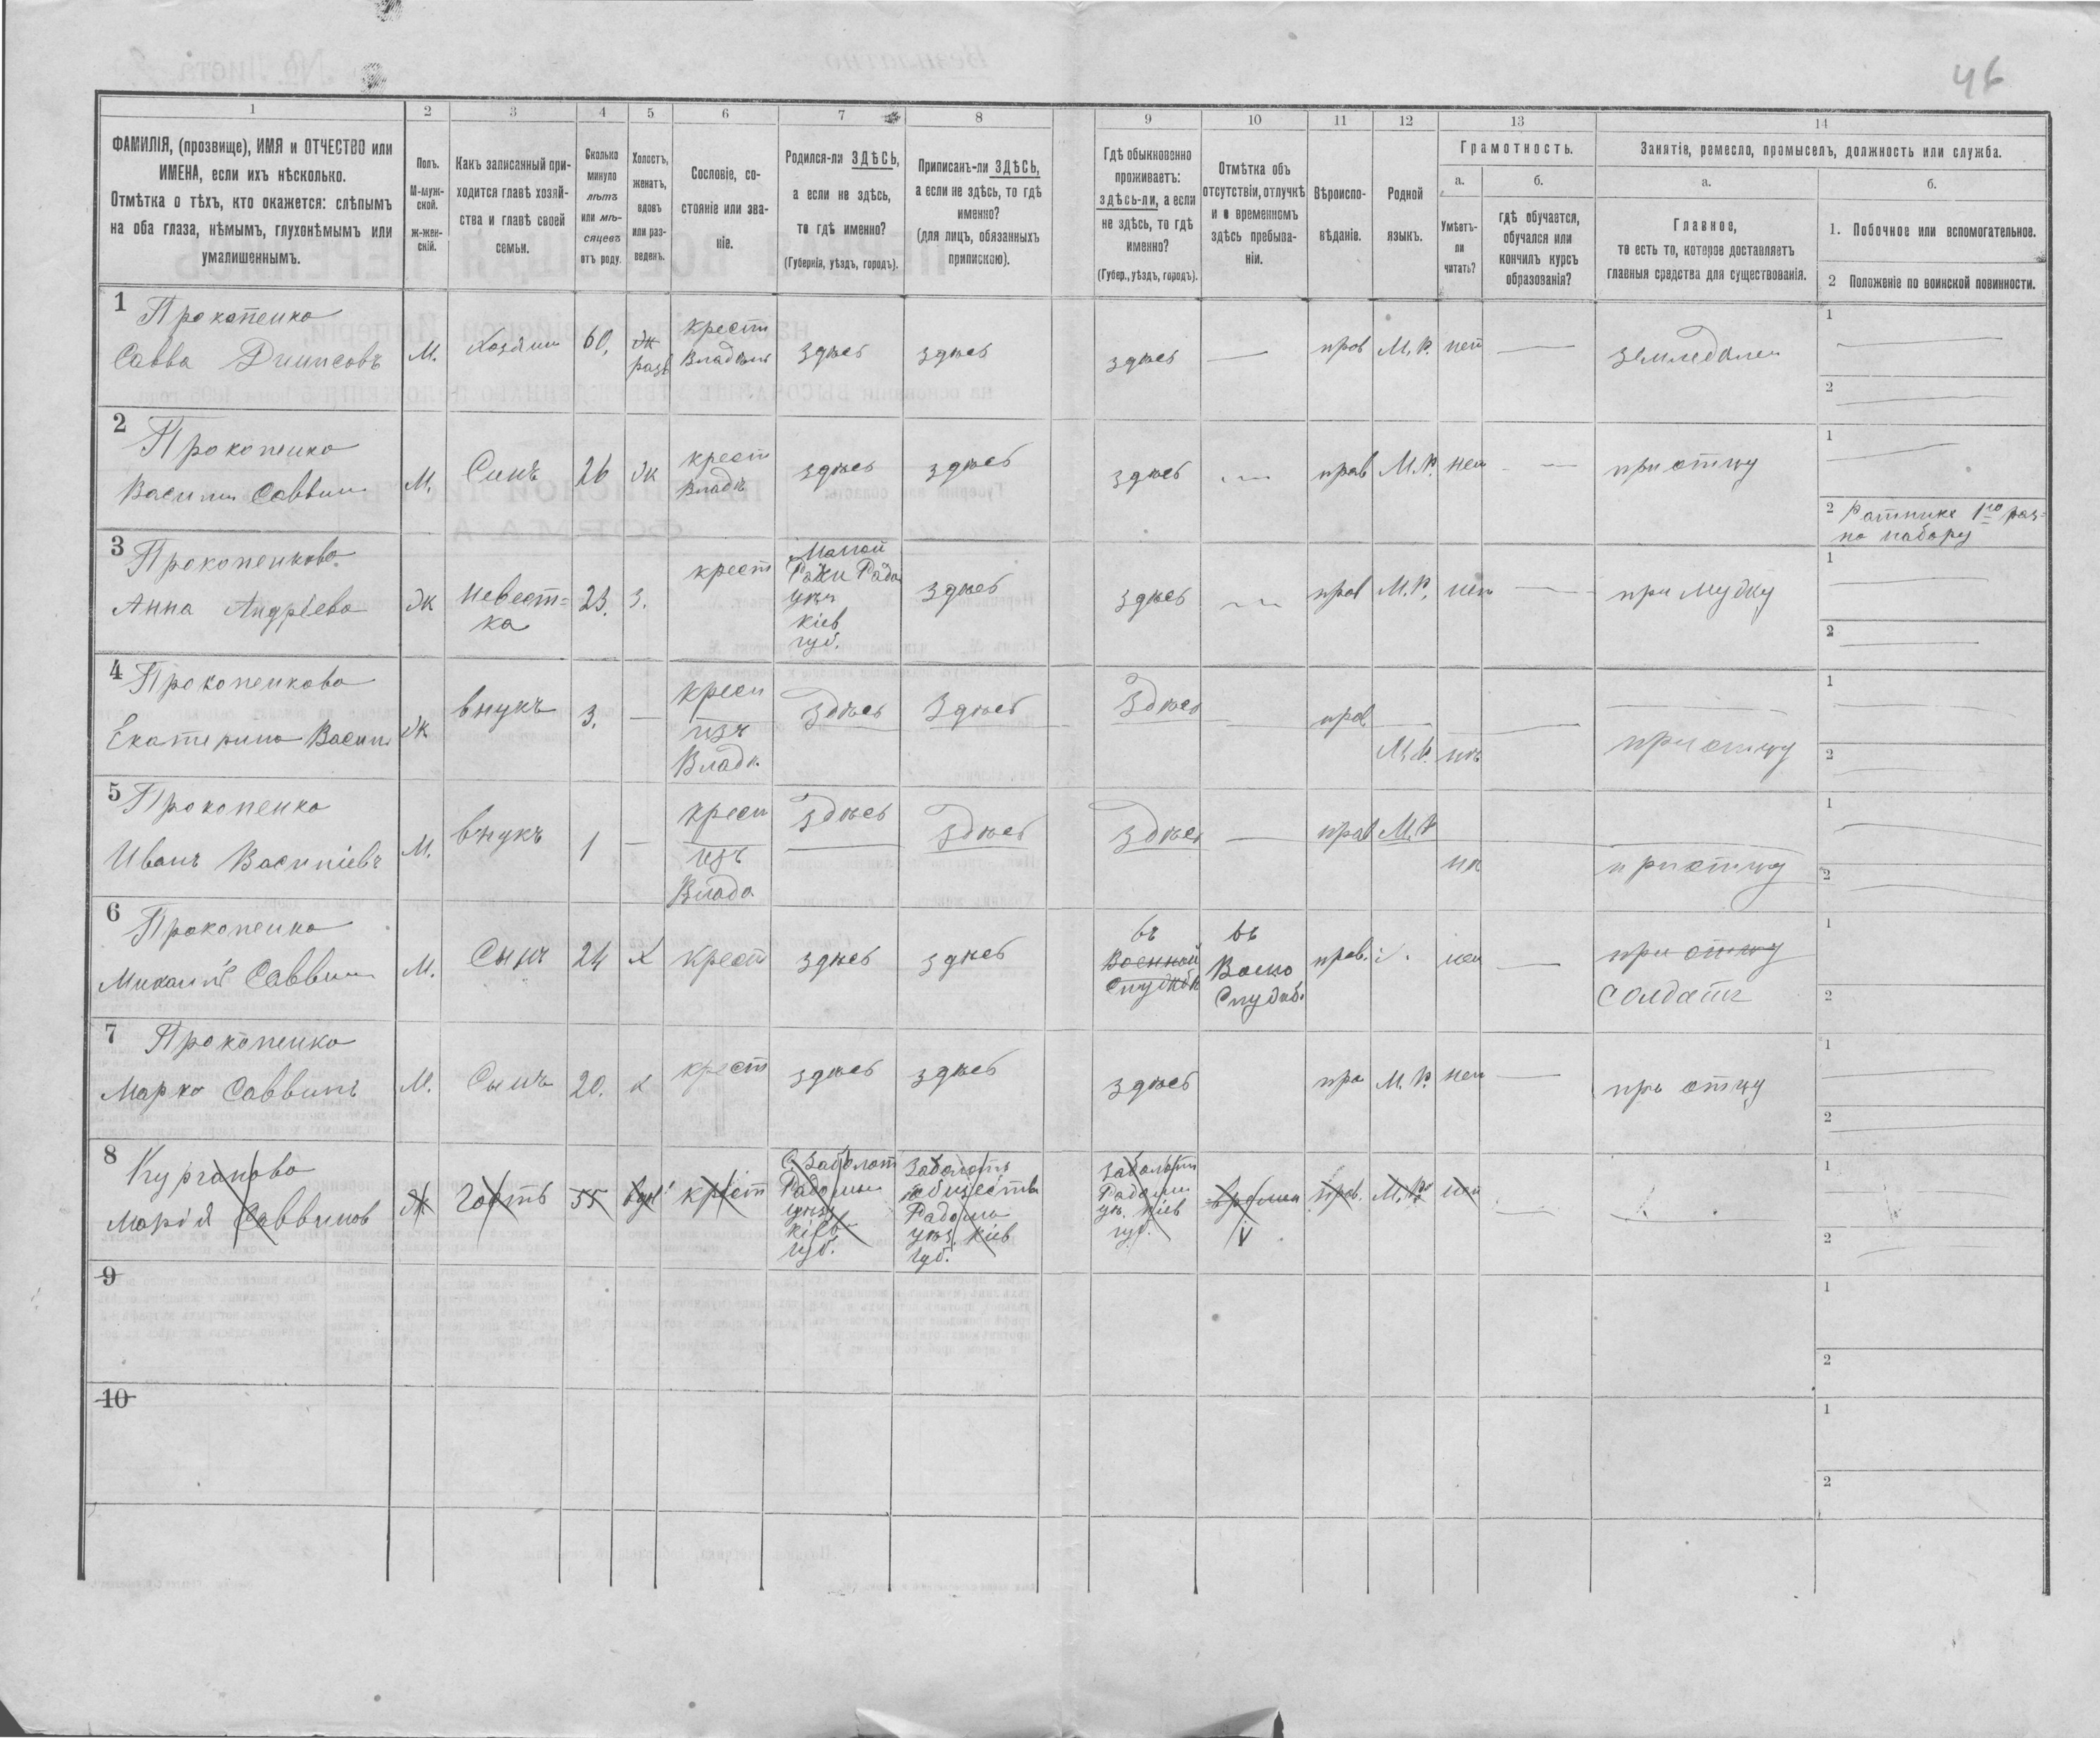 46
1
2
3
4
5
6
7
8
9
10
11
12
13
14
ФАМИЛІЯ, (прозвище), ИМЯ и ОТЧЕСТВО или
ИМЕНА, если ихъ нѣсколько.
Отмѣтка о тѣхъ, кто окажется: слѣпымъ
на оба глаза, нѣмымъ, глухонѣмымъ или
умалишеннымъ.
Полъ.
М-муж-
ской.
ж-жен-
скій.
Какъ записанный при-
ходится главѣ хозяй-
ства и главѣ своей
семьи.
Сколько
минуло
лѣтъ
или мѣ-
сяцевъ
отъ роду.
Холостъ,
женатъ,
вдовъ
или раз-
веденъ.
Сословіе, со-
стояніе или зва-
ніе.
Родился-ли ЗДѢСЬ,
а если не здѣсь,
то гдѣ именно?
(Губернія, уѣздъ, городъ).
Приписанъ-ли ЗДѢСЬ,
а если не здѣсь, то гдѣ
именно?
(для лицъ, обязанныхъ
припискою).
Гдѣ обыкновенно
проживаетъ:
здѣсь-ли, а если
не здѣсь, то гдѣ
именно?
(Губер., уѣздъ, городъ).
Отмѣтка объ
отсутствіи, отлучкѣ
и о временномъ
здѣсь пребыва-
ніи.
Вѣроиспо-
вѣданіе.
Родной
языкъ.
Грамотность.
а.
Умѣетъ-
ли
читать?
б.
гдѣ обучается,
обучался или
кончилъ курсъ
образованія?
Занятіе, ремесло, промыселъ, должность или служба.
а.
Главное,
то есть то, которое доставляетъ
главныя средства для существованія.
б.
1. Побочное или вспомогательное.
2 Положеніе по воинской повинности.
1
Прокопенко
Савва Денисовъ
М.
Хозяин
60.
ж
разв
крест
Владѣль
здѣсь
здѣсь
здѣсь
—
прав
М. Р.
нет
—
земледѣлец
1
2
2
Прокопенко
Васили Саввин
М.
Синъ
26
ж
крест
владѣ
здѣсь
здѣсь
здѣсь
—
прав
М. Р.
нет
—
при отцу
1
2 Ратнике 1го раз-
по набору
3
Прокопенкова
Анна Андрієва
ж
Невест-
ка
23.
з.
крест
Малой
Рачи Радо
уѣз
Кіев
губ.
здѣсь
здѣсь
—
прав
М. Р.
нет
—
при мужу
1
2
4
Прокопенкова
Екатерина Васил
ж
внукъ
3.
—
крест
изъ
Владѣ.
здѣсь
здѣсь
здѣсь
—
прав
М. Р.
нѣ
—
при отцу
1
2
5
Прокопенко
Иванъ Василіевъ
М.
внукъ
1
—
крест
изъ
Владѣ
здѣсь
здѣсь
здѣсь
—
прав
М. Р.
нѣ
при отцу
1
2
6
Прокопенко
Михаилъ Саввин
М.
Сынъ
24
х
крест
здѣсь
здѣсь
въ
Военной
Службѣ
въ
Воено
Службѣ.
прав.
нет
—
при отцу
Солдатъ
1
2
7
Прокопенко
Марко Саввинъ
М.
Сынъ
20.
х
крест
здѣсь
здѣсь
здѣсь
пра
М. Р.
нет
—
при отцу
1
2
8
Курганово
Марія Саввинов
ж
Гость
55
вдо
крест
С. Заболот
Радомы
уѣз
Кіев
губ.
Заболоть
общества
Радомы
уѣз. Кіев
губ.
Заболоть
Радомы
уѣ. Кіев
губ.
времен
прав.
М. Р.
нет
1
2
9
1
2
10
1
2